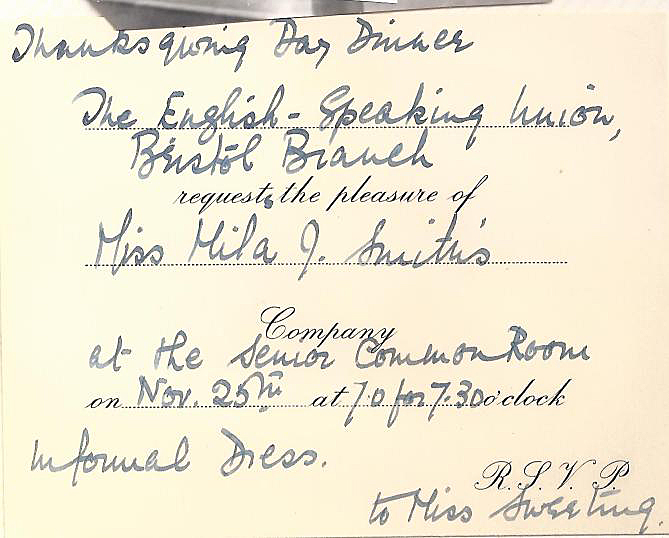 Thanksgiving Day Dinner
The English-Speaking Union,
Bristol Branch
requests the pleasure of
Miss Mila J. Smith's
Company
at the Senior Common Room
on Nov. 25th at 7.0 for 7.30 o'clock
Informal Dress.
R.S.V.P.
to Miss Sweeting.